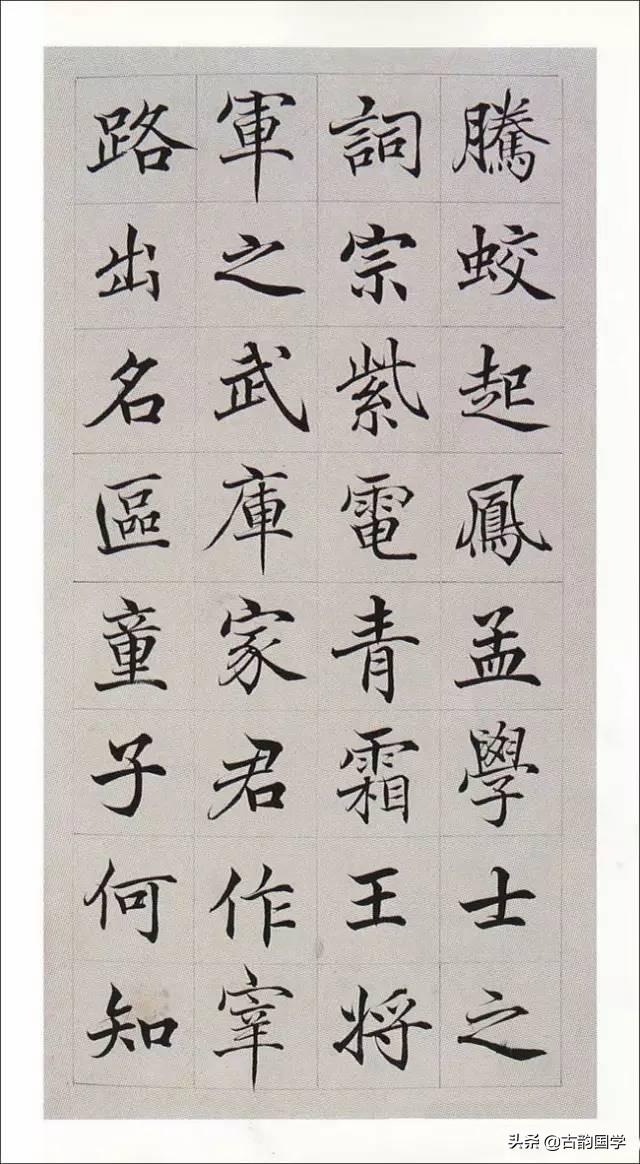 騰蛟起鳳孟學士之
詞宗紫電青霜王將
軍之武庫家君作宰
路出名區童子何知
头条 @古韵国学